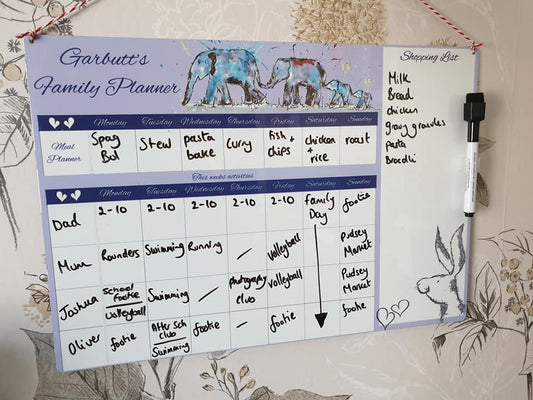 Garbutt's
Family Planner
Shopping List
Milk
Bread
chicken
gravy granules
pasta
Brocolli
Monday Tuesday Wednesday Thursday Friday Saturday Sunday
Meal Planner
Spag Bol
Stew
pasta bake
Curry
fish + chips
chicken + rice
roast
This weeks activities
Monday Tuesday Wednesday Thursday Friday Saturday Sunday
Dad 2-10 2-10 2-10 2-10 2-10 Family Day footie
Mum Rounders Swimming Running — Volleyball Pudsey Market
Joshua School footie Volleyball Swimming — photography club Volleyball Pudsey Market
Oliver footie After Sch club Swimming footie — footie footie